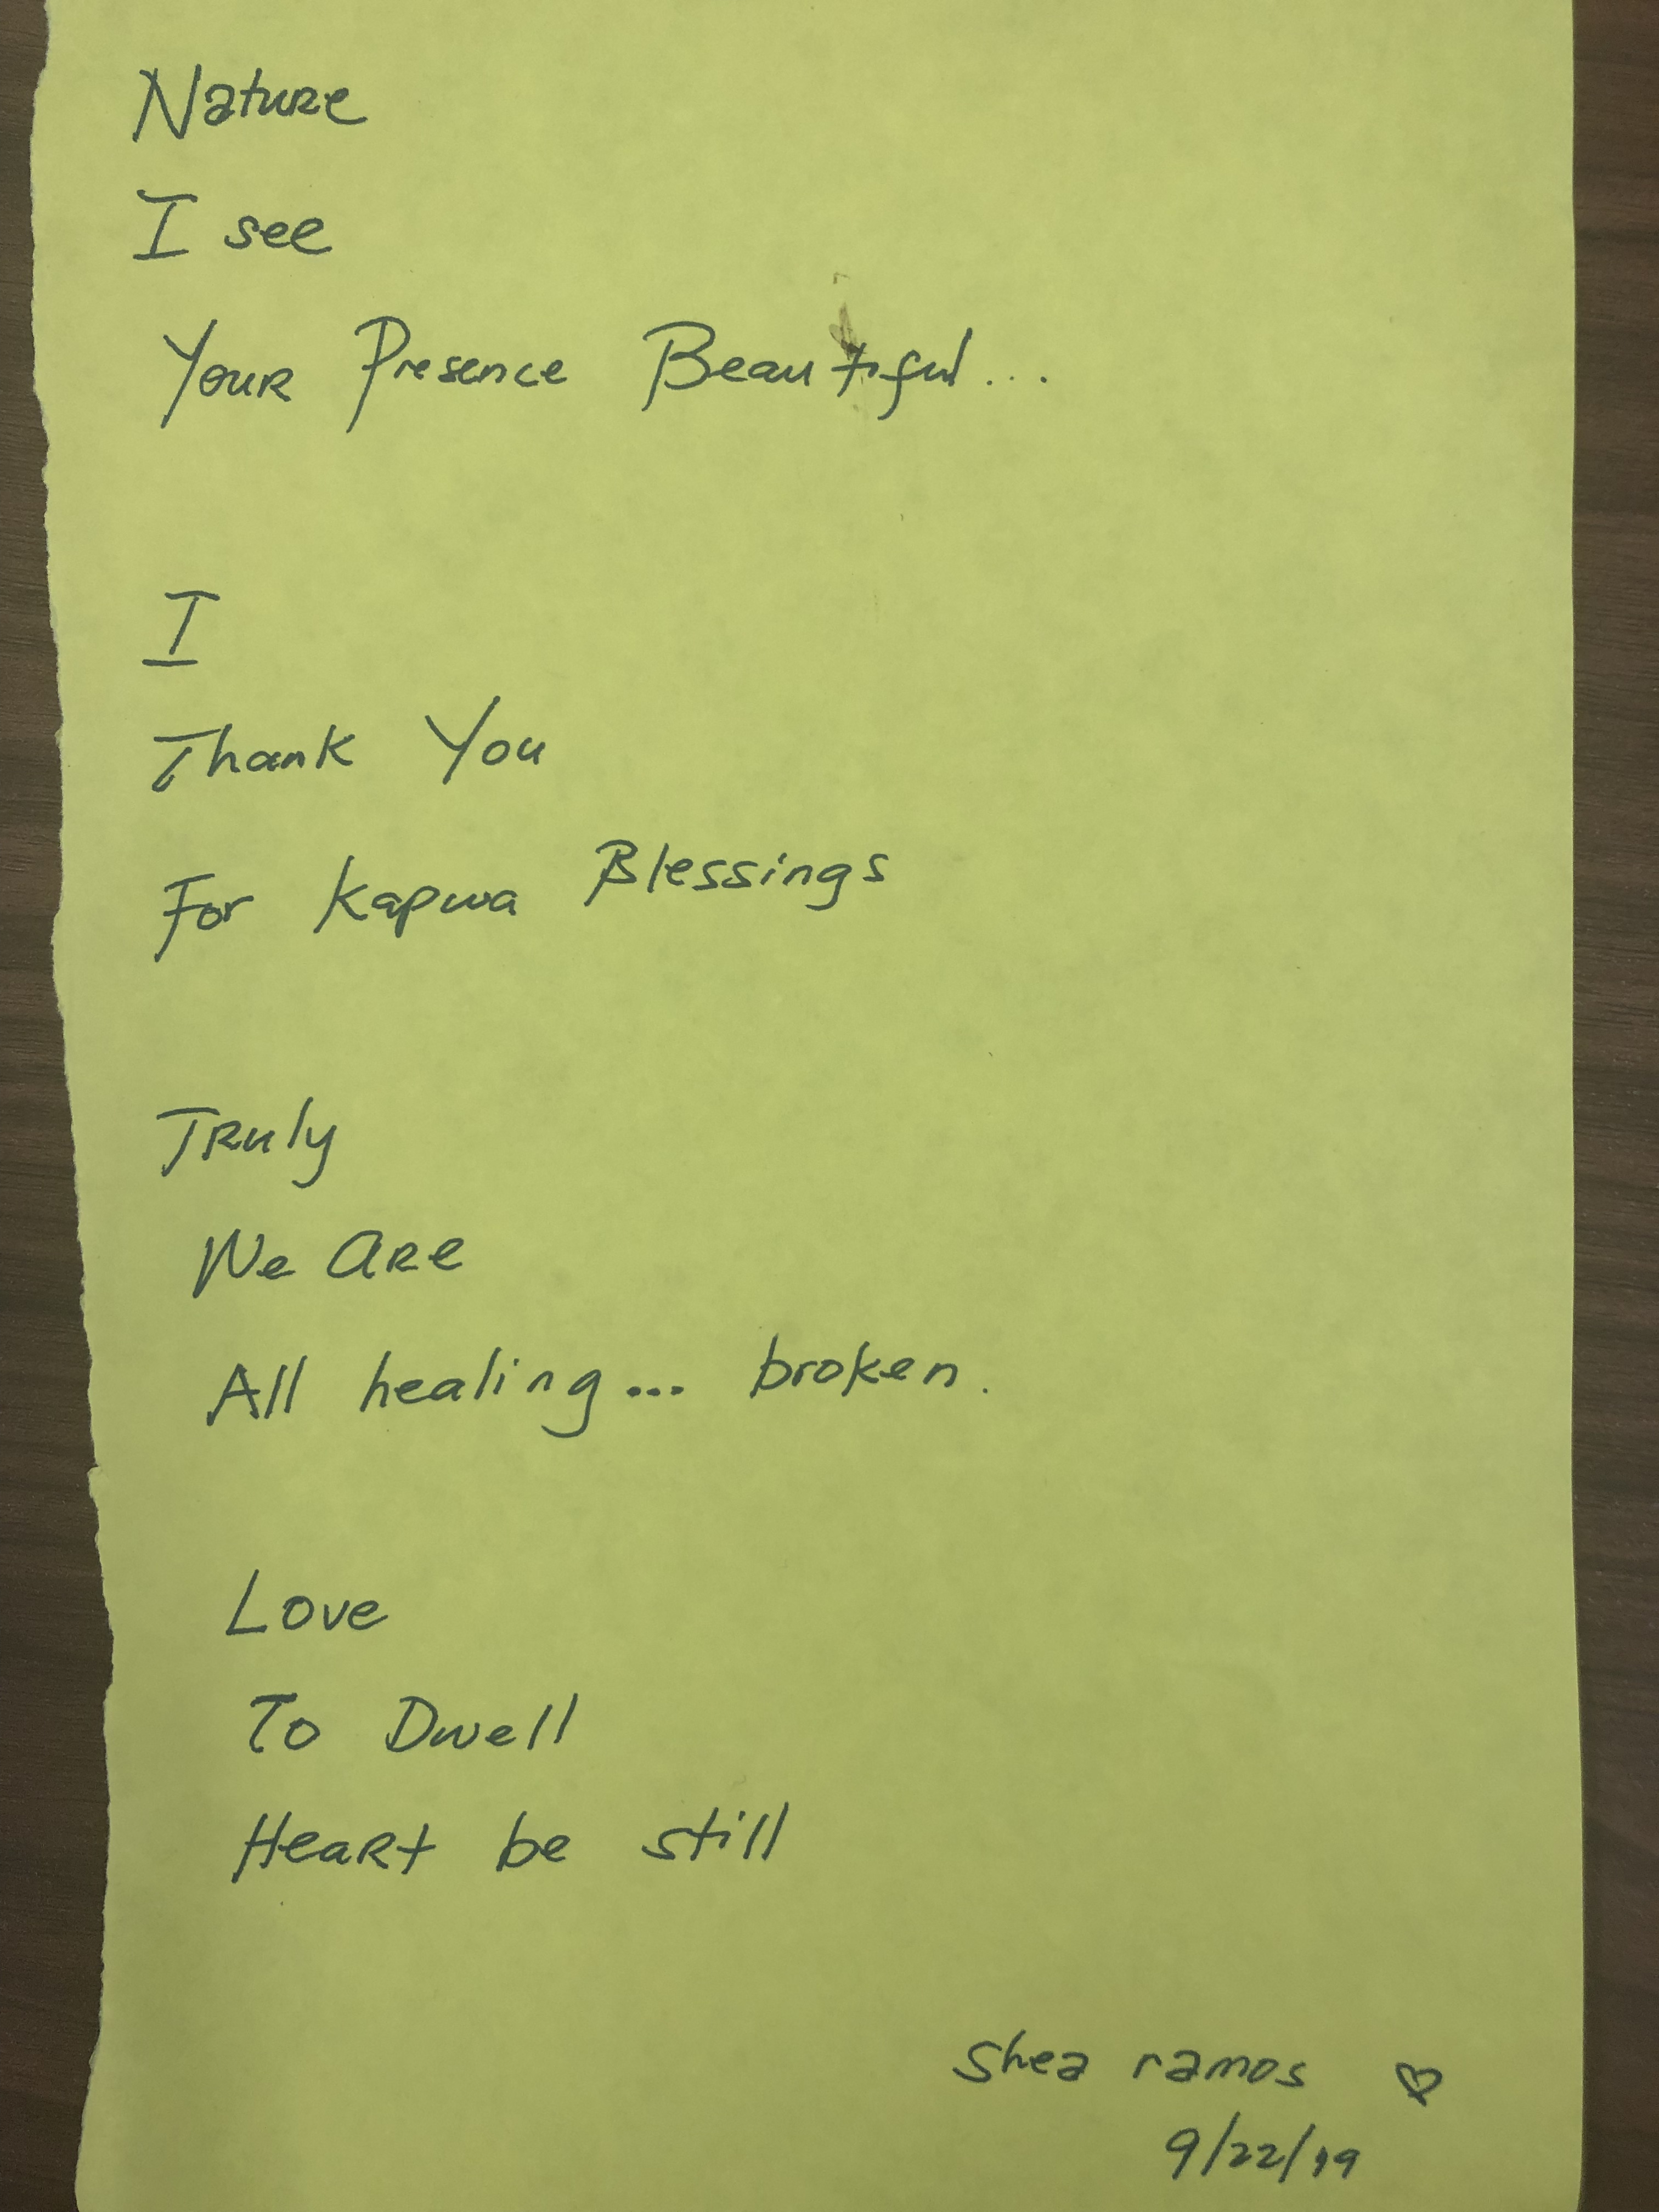 Nature
I see
Your Presence Beautiful...
I
Thank You
For Kapwa Blessings
Truly
We Are
All healing... broken.
Love
To Dwell
Heart be still
Shea ramos ♡
9/22/19